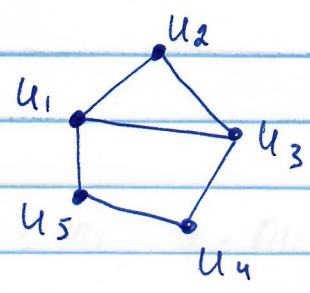 u2
u1
u3
u5
u4